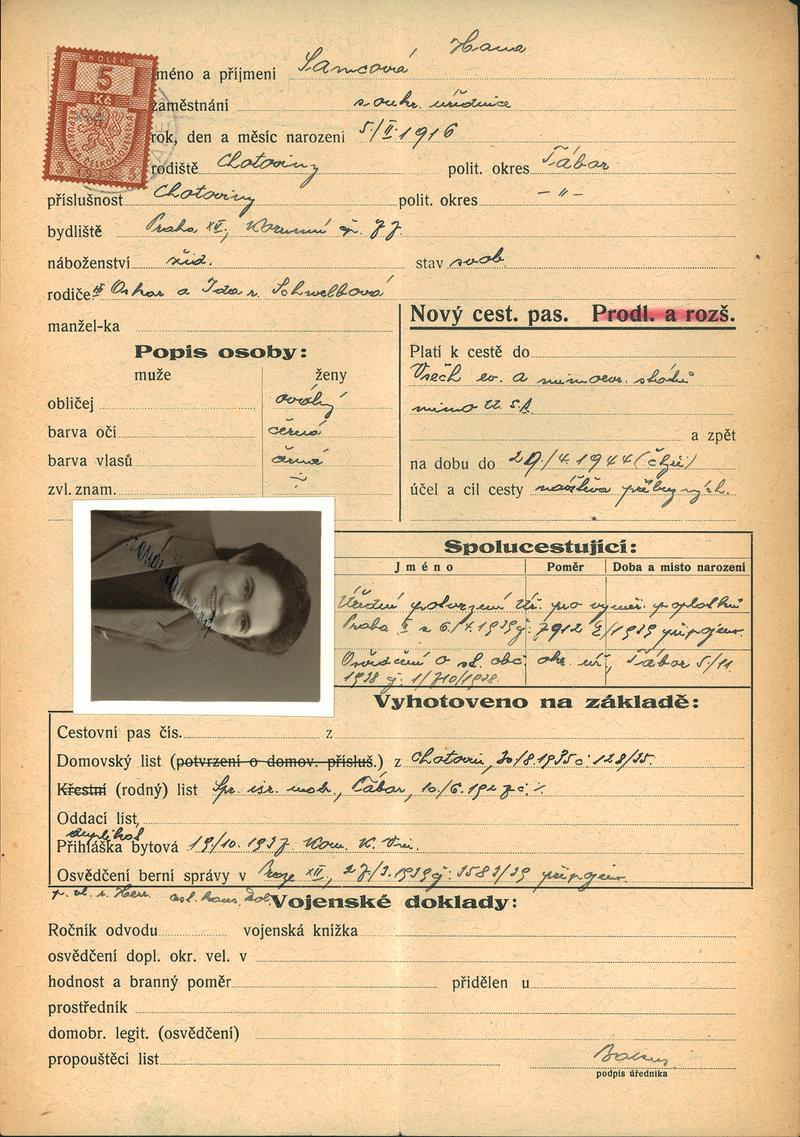 Samcová Hana
KOLEK
5
Kč
jméno a příjmení
zaměstnání soukr. úřednice
rok, den a měsíc narození 5/II. 1916
rodiště Chotoviny polit. okres Tábor
příslušnost Chotoviny polit. okres – " –
bydliště Praha XII, Korunní čp.
náboženství žid. stav svob.
rodiče Oskar a Ida r. Schwelbová
manžel-ka
Nový cest. pas. Prodl. a rozš.
Popis osoby:
muže ženy
obličej oválný
barva očí černá
barva vlasů černá
zvl. znam.
Platí k cestě do
Všech ev. a mimoevr. států
mimo U.S.A.
a zpět
na dobu do 29./4. 1944
účel a cíl cesty návštěva příbuzných.
Spolucestující:
Jméno Poměr Doba a místo narození
Úřední potvrzení Úř. pro vyměř. poplatků
Praha 6/4. 1939 7912 /1939 připojeno.
Osvědčení o st. obč. okr. úř., Tábor 5/11.
1938 1/710/1938.
Vyhotoveno na základě:
Cestovní pas čís. z
Domovský list (potvrzení o domov. přísluš.) z Chotovin, 30/8. 1935 č. 128/35.
Křestní (rodný) list Spr. isr. mob., Tábor, 10/6. 1927
Oddací list
duplikát
Přihláška bytová 19/10. 1937 Kom. K. Vin.
Osvědčení berní správy v Praze XII, 27/3. 1939 3583/39 připojeno.
Vojenské doklady:
Ročník odvodu vojenská knížka
osvědčení dopl. okr. vel. v
hodnost a branný poměr přidělen u
prostředník
domobr. legit. (osvědčení)
propouštěcí list
podpis úředníka